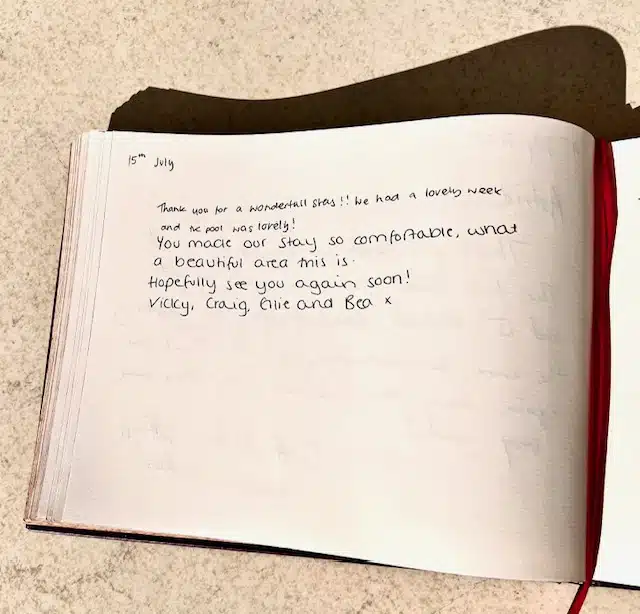 15th July
Thank you for a wonderfull stay!! We had a lovely week
and the pool was lovely!
You made our stay so comfortable, what
a beautiful area this is.
Hopefully see you again soon!
Vicky, Craig, Ellie and Bea x